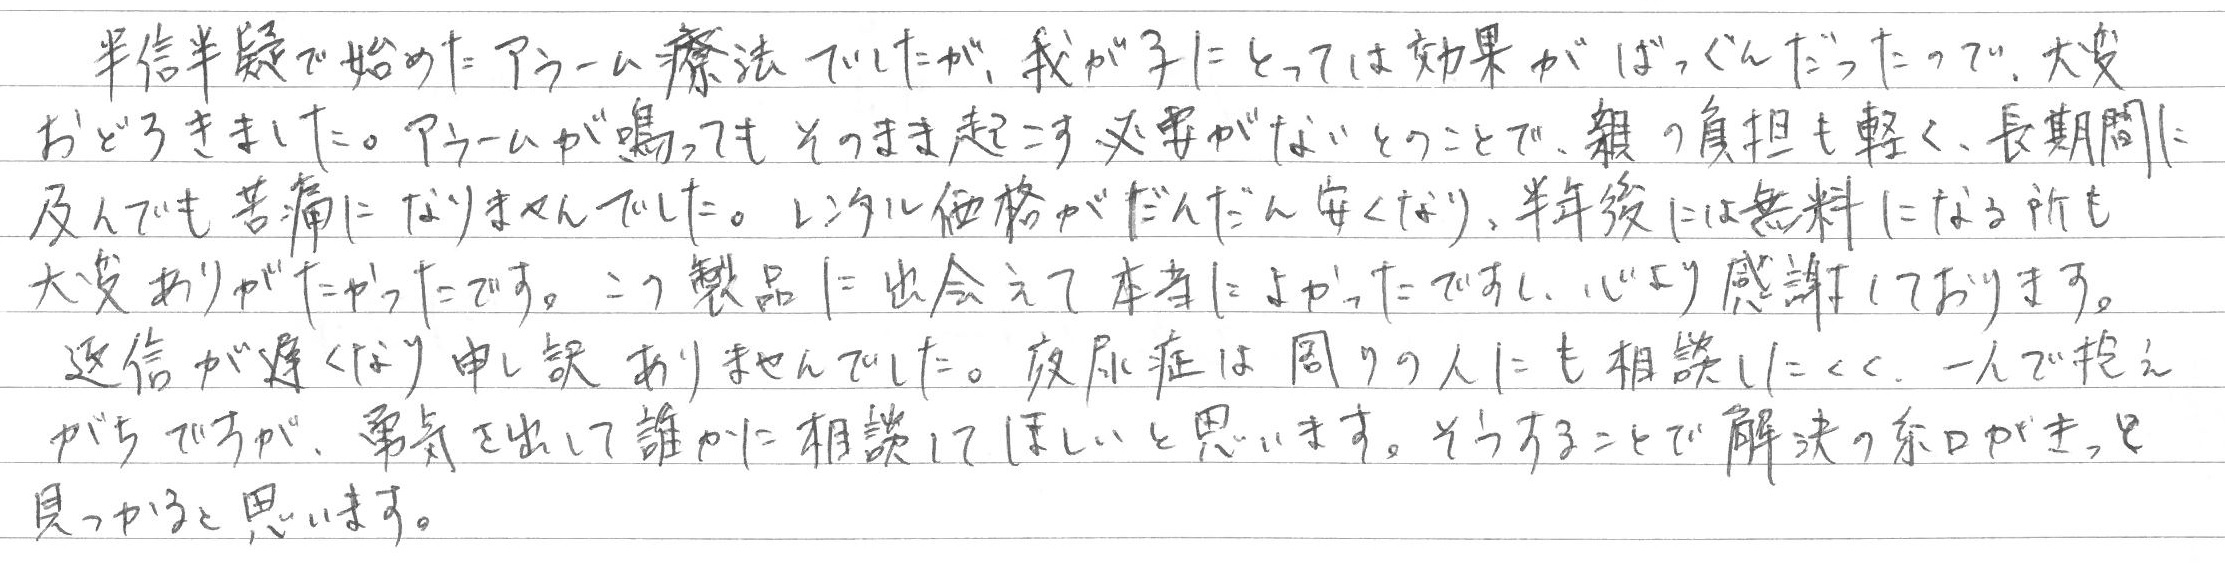 半信半疑で始めたアラーム療法でしたが、我が子にとっては効果がばっぐんだったので、大変
おどろきました。アラームが鳴ってもそのまま起こす必要がないとのことで、親の負担も軽く、長期間に
及んでも苦痛になりませんでした。レンタル価格がだんだん安くなり、半年後には無料になる所も
大変ありがたかったです。この製品に出会えて本当によかったですし、心より感謝しております。
返信が遅くなり申し訳ありませんでした。夜尿症は周りの人にも相談しにくく、一人で抱え
がちですが、勇気を出して誰かに相談してほしいと思います。そうすることで解決の糸口がきっと
見つかると思います。